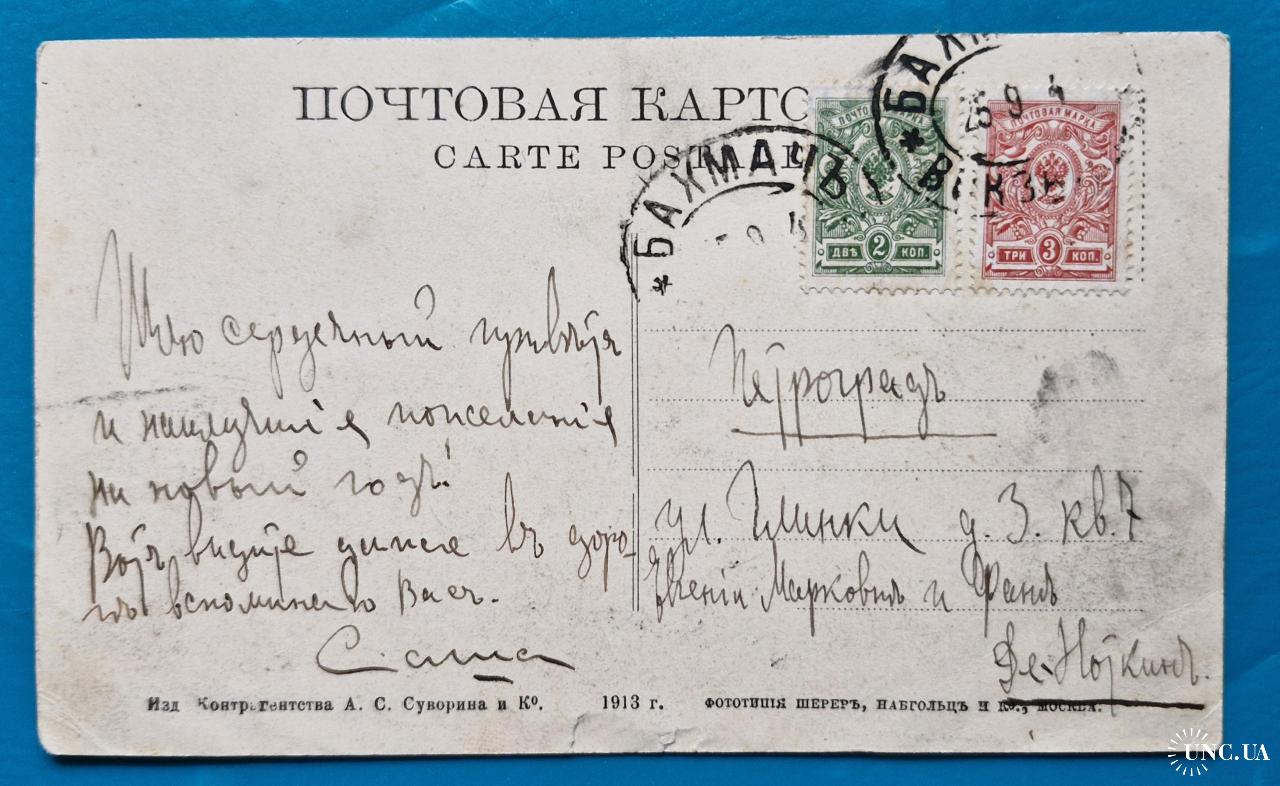 ПОЧТОВАЯ КАРТО
CARTE POSTALE
*БАХМАЧЪ
*БАХМ
ВОКЗ
25 9
ПОЧТОВАЯ МАРКА
2
ДВѢ КОП.
ПОЧТОВАЯ МАРКА
3
ТРИ КОП.
Шлю сердечный привѣтъ
и наилучшія пожеланія
на новый годъ!
Вотъ видите даже въ доро-
гѣ вспоминаю Васъ.
Саша
Петроградъ
ул. Глинки д. 3. кв. 7
Евгеніи Марковнѣ и Фанѣ
Де-Ноткинъ.
Изд Контрагентства А. С. Суворина и Ко. 1913 г. ФОТОТИПІЯ ШЕРЕРЪ, НАБГОЛЬЦЪ И Ко., МОСКВА.
UNC.UA